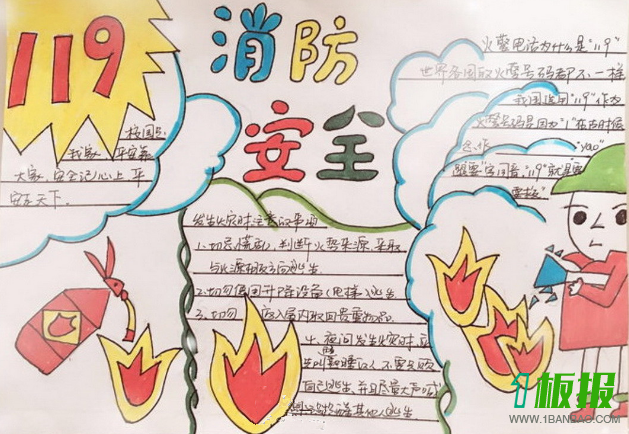 119
消防
安全
火警电话为什么是"119"
世界各国的火警号码都不一样
我国选用"119"作为
火警号码是因为"1"在古时候
念作"yao"
跟"要"字同音."119"就是要
要救
大家.安全记心上.平
安天下.
发生火灾时注意的事项
1.切忌慌乱,判断火势来源,采取
与火源相反方向逃生
2.切勿使用升降设备(电梯)逃生
3.切勿返入屋内取回贵重物品
4.夜间发生火灾时,应
先叫醒熟睡的人,不要只顾
自己逃生,并且尽量大声喊叫
其他人逃生
板报
WWW.1BANBAO.COM